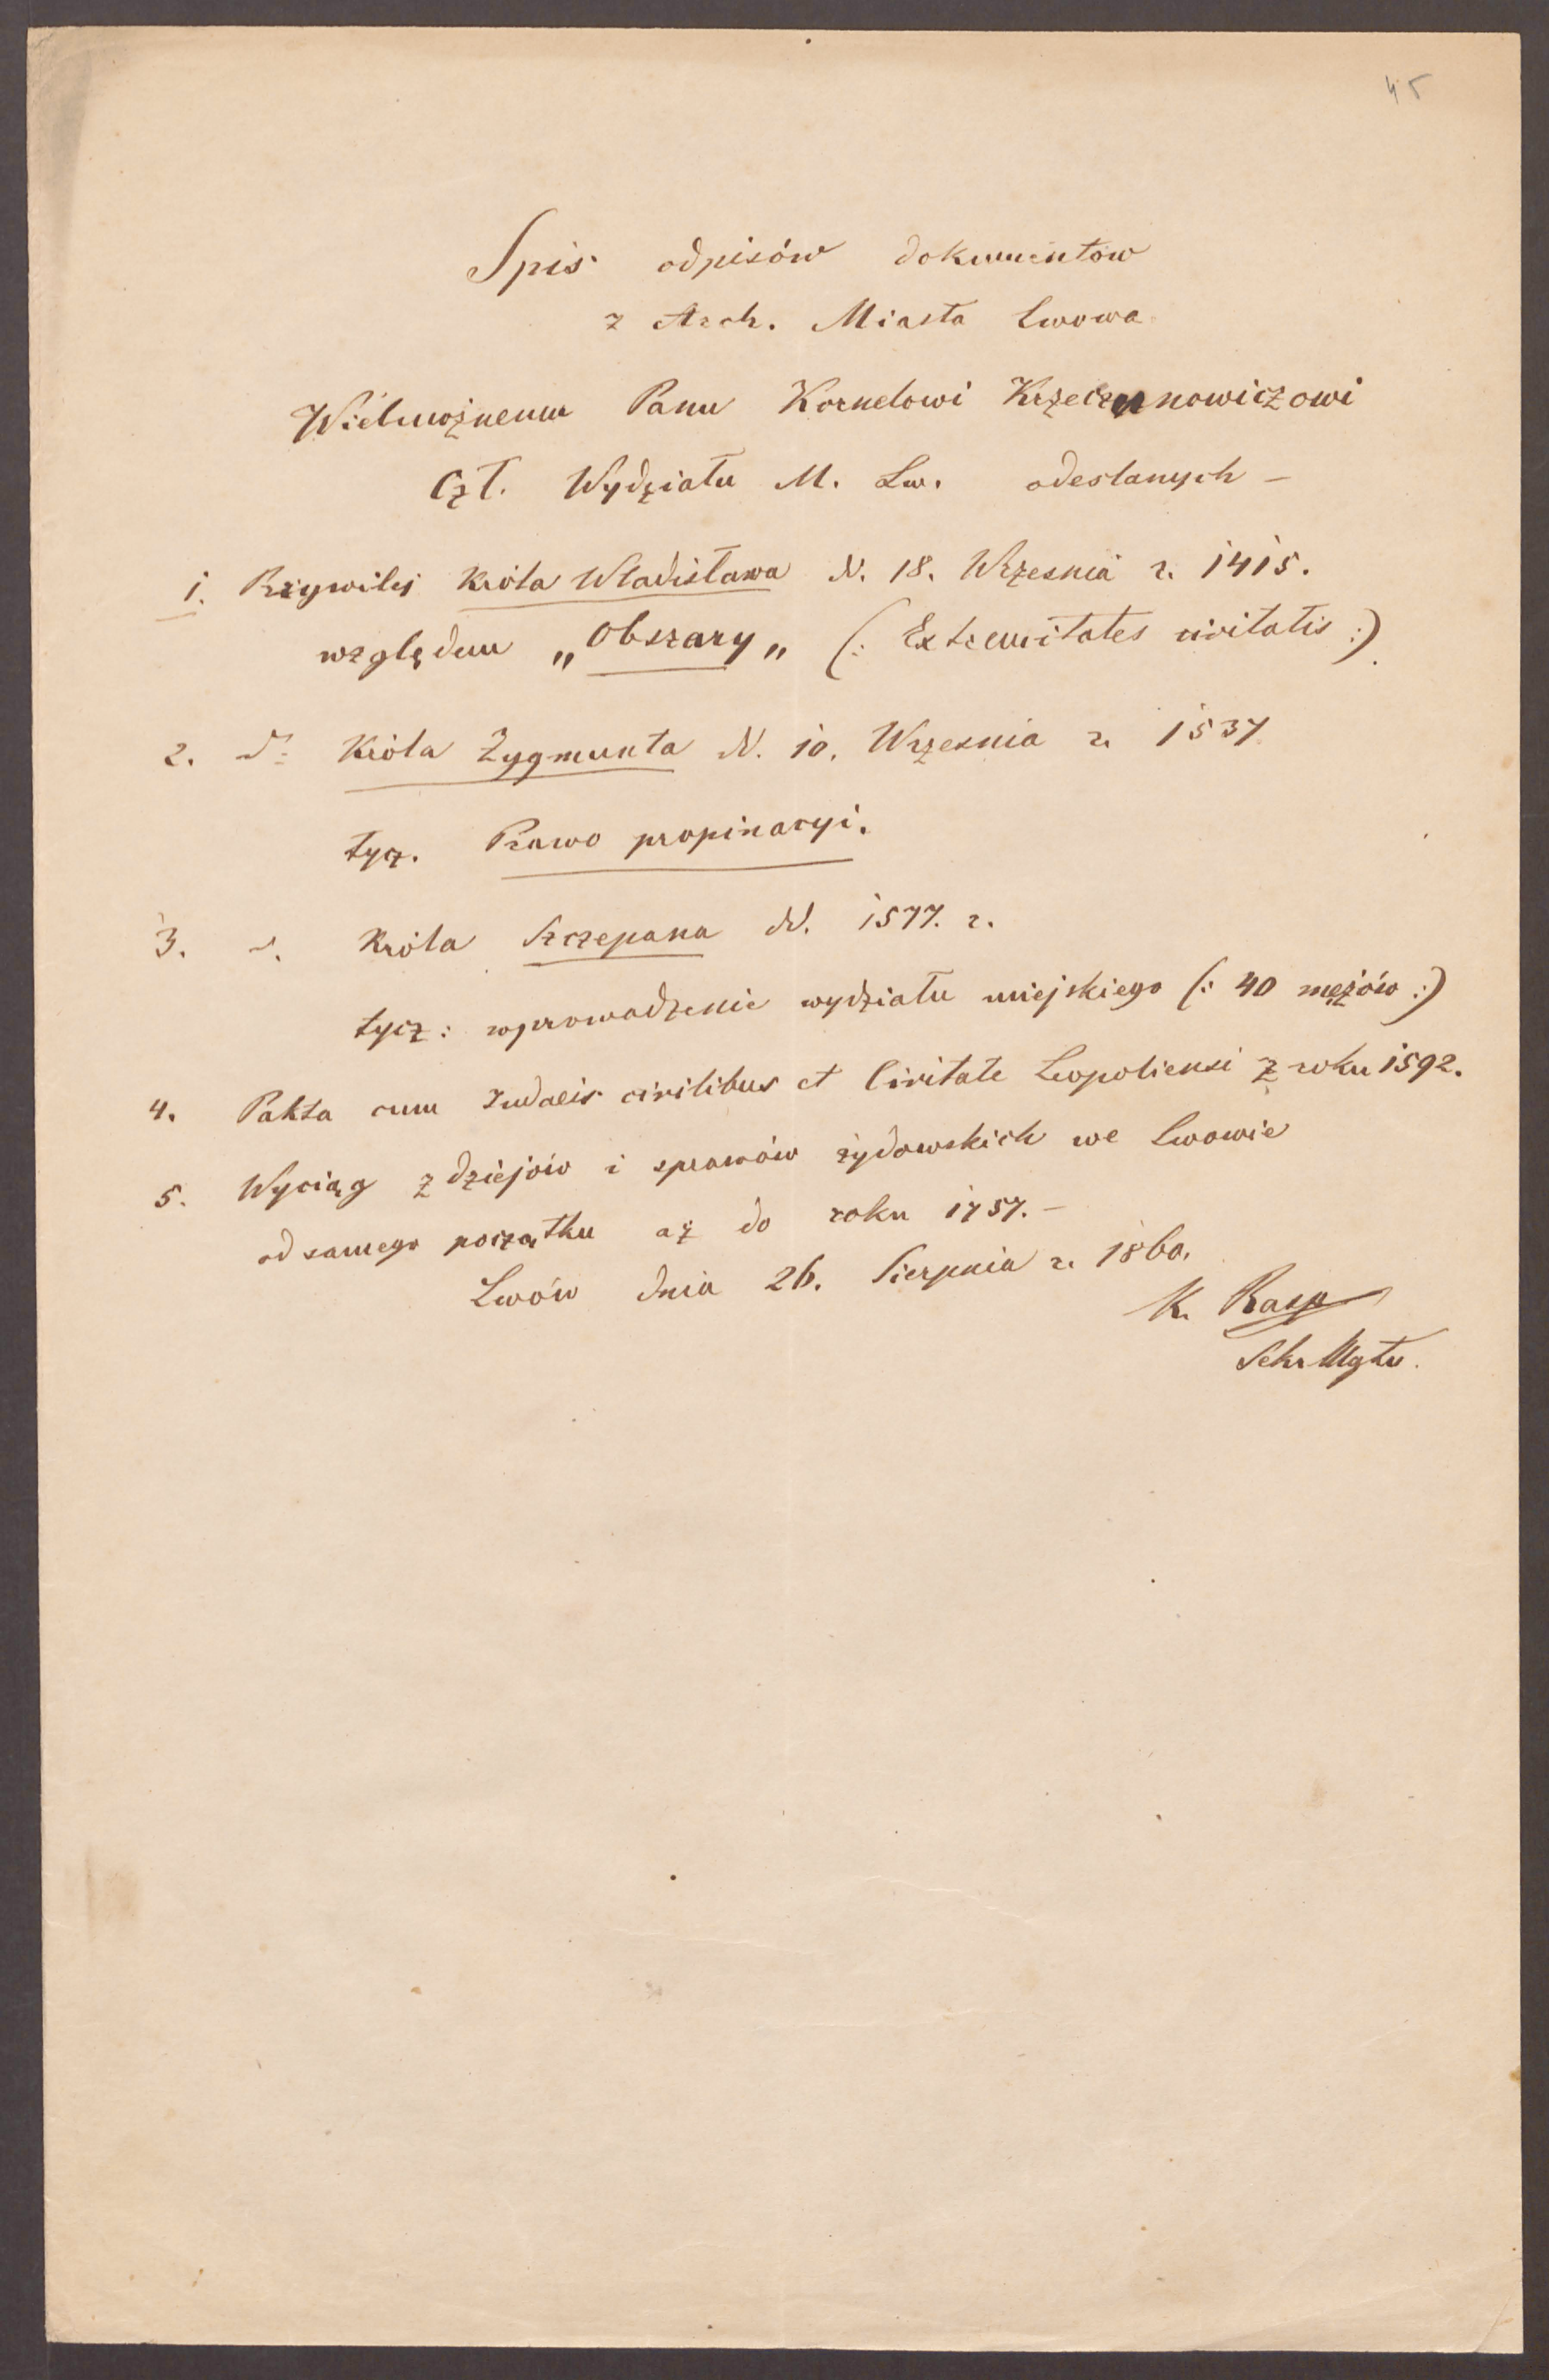 45
Spis odpisów dokumentów
z Arch. Miasta Lwowa
Wielmożnemu Panu Kornelowi Krzeczunowiczowi
Czł. Wydziału M. Lw. odesłanych –
1. Przywilej Króla Władisława d. 18. Wrzesnia r. 1415.
względem „Obszary„ (: Extremitates civitatis :).
2. do Króla Zygmunta d. 10. Wrzesnia r. 1537
tycz. Prawo propinacyi.
3. Króla Szczepana d. 1577. r.
tycz: wprowadzenie wydziału miejskiego (: 40 mężów :)
4. Pakta cum Judaeis civilibus et Civitate Leopoliensi z roku 1592.
5. Wyciąg z dziejów i sprawów żydowskich we Lwowie
od samego początku aż do roku 1757. –
Lwów dnia 26. Sierpnia r. 1860.
K. Rasp
Sekr Mgtu.